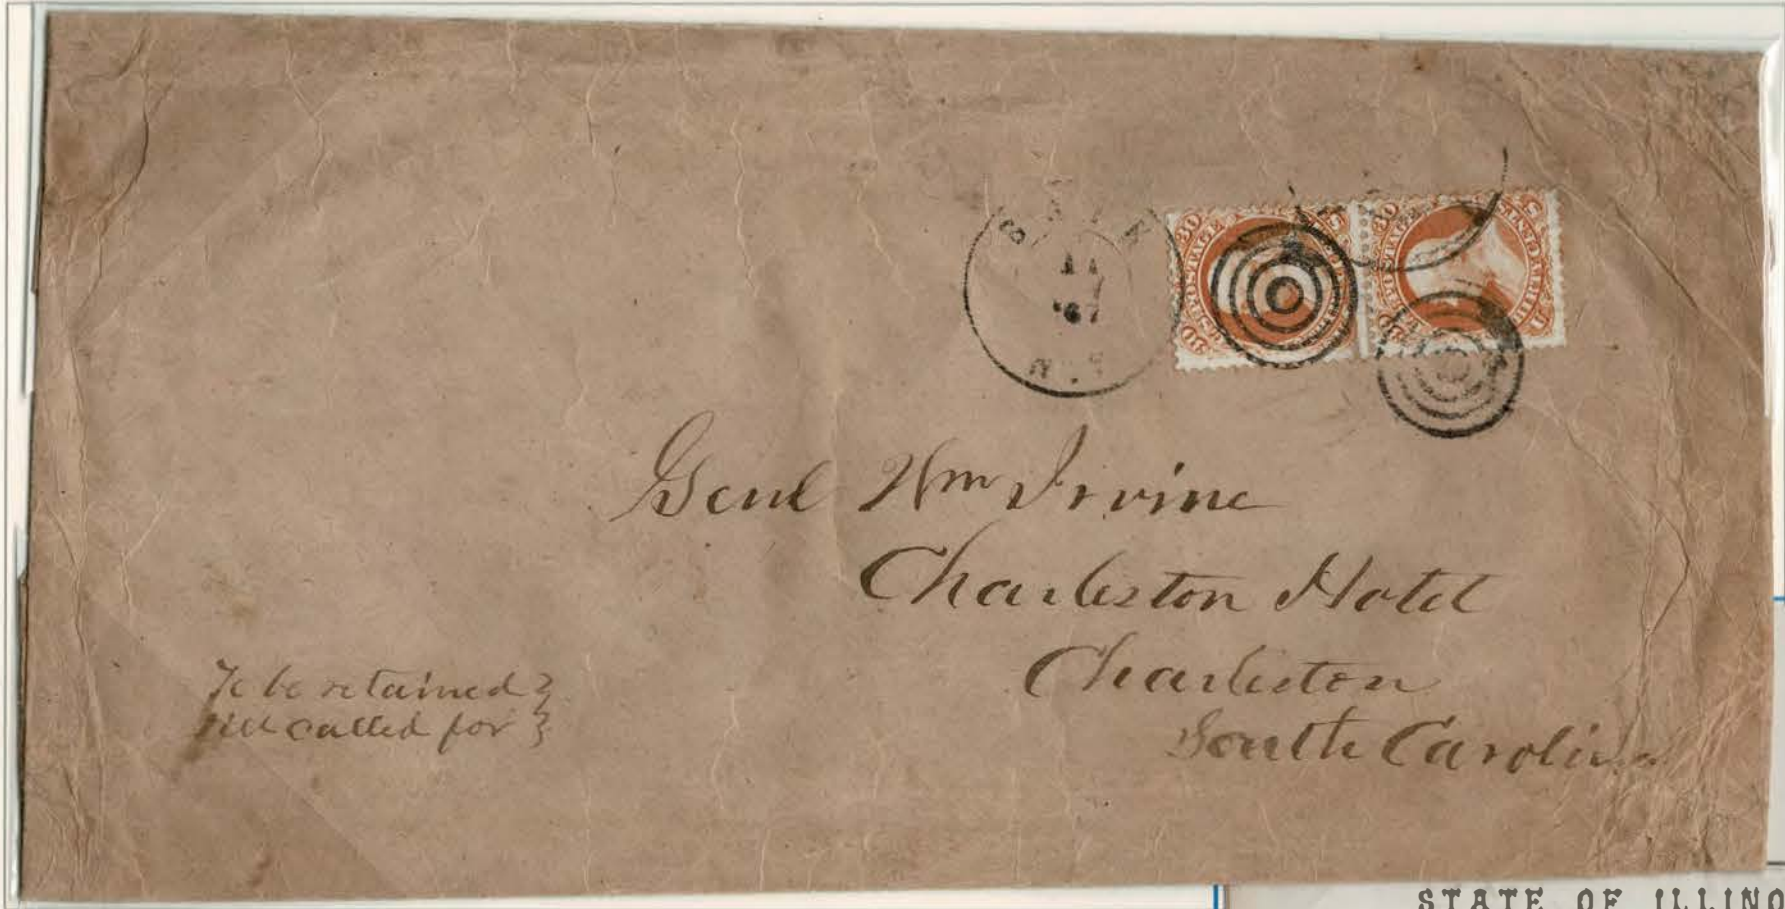 '67
N.Y.
30 30
U.S. POSTAGE U.S. POSTAGE
Genl Wm Irvine
Charleston Hotel
Charleston
South Carolina
To be retained }
till called for }
STATE OF ILLINO